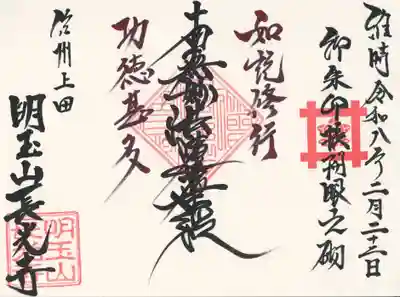 維時令和八年二月二十二日
御朱印帳開眼之砌
如説修行
南無妙法蓮華経
功徳甚多
信州上田
明玉山長光寺
明玉山
長光寺